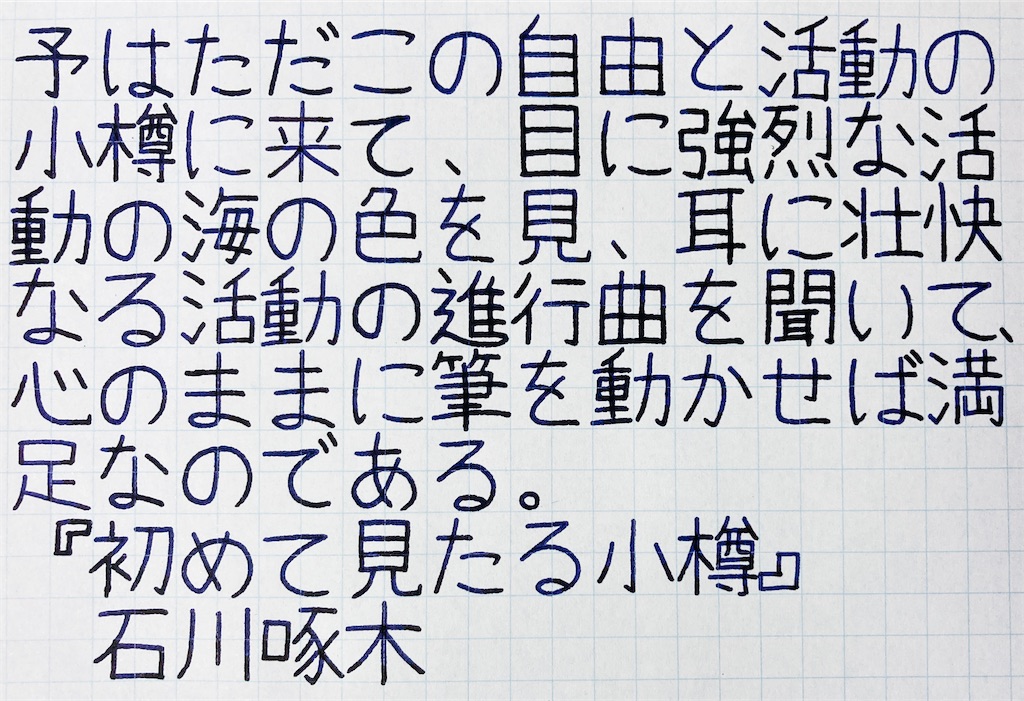 予はただこの自由と活動の
小樽に来て、目に強烈な活
動の海の色を見、耳に壮快
なる活動の進行曲を聞いて、
心のままに筆を動かせば満
足なのである。
『初めて見たる小樽』
石川啄木